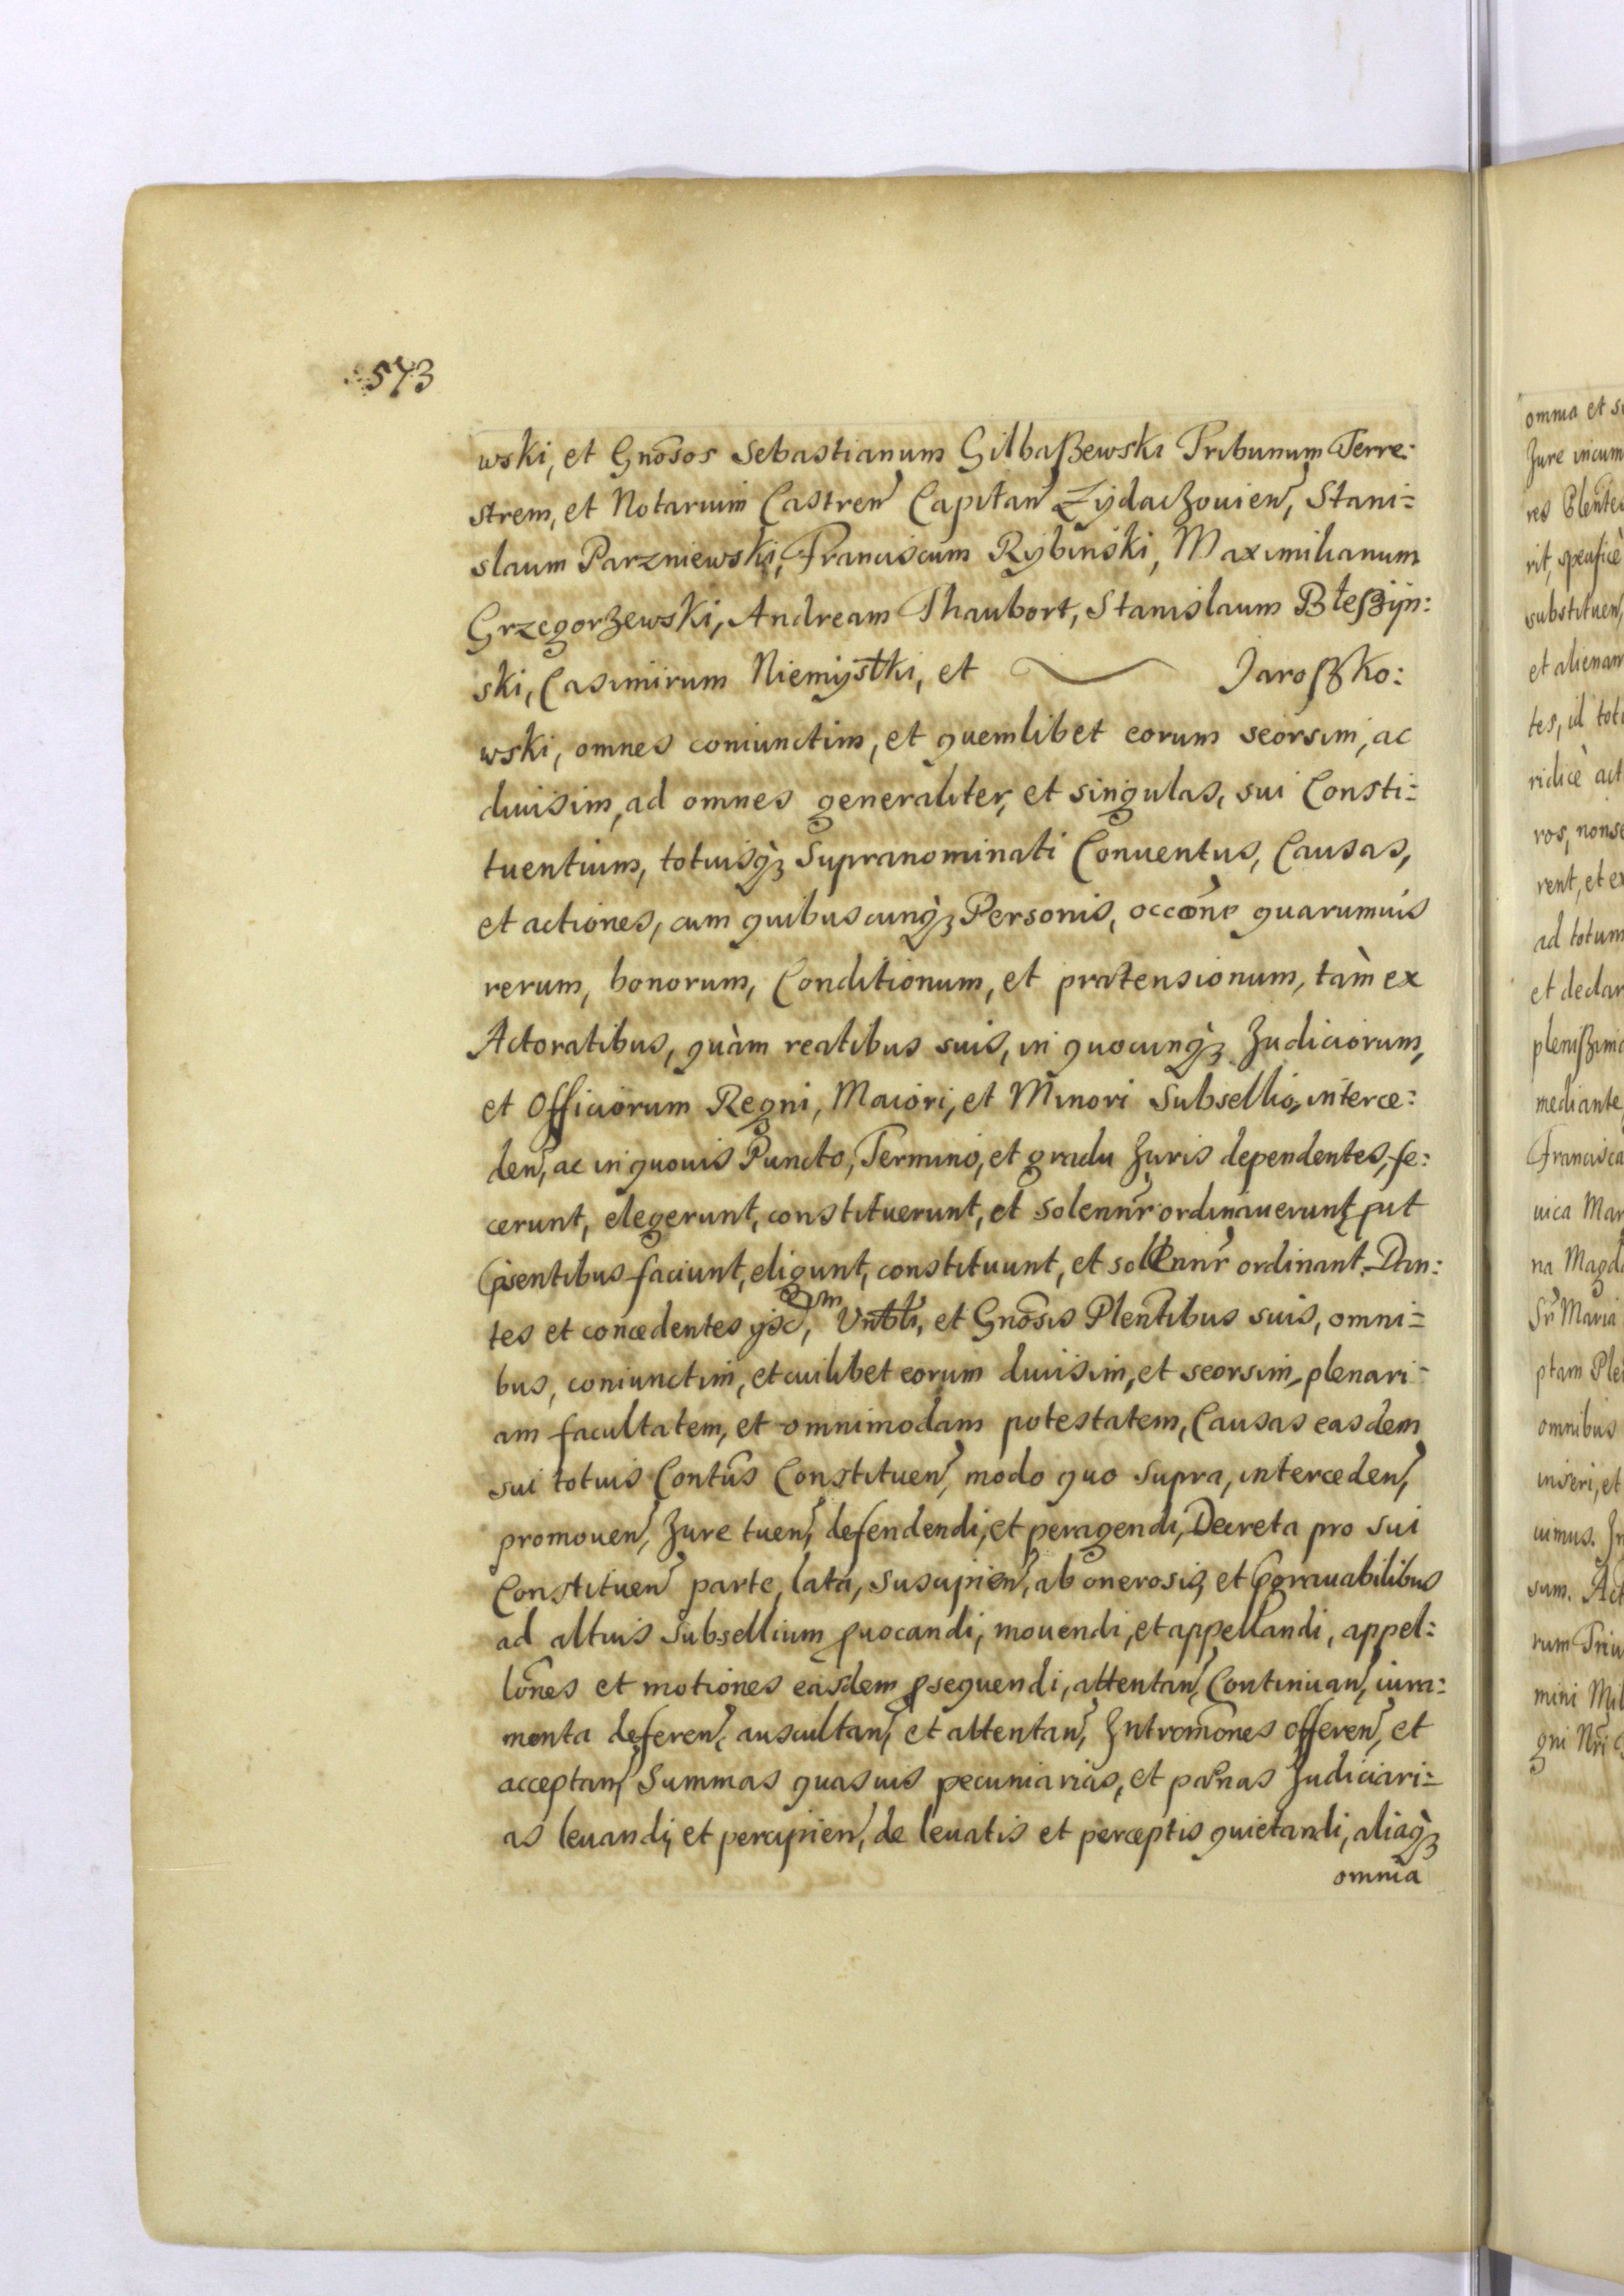 573
wski, et Gnosos Sebastianum Gilbaßewski Tribunum Terre:
strem, et Notarium Castren Capitan Zydaczouien, Stani=
slaum Parzniewski, Franciscum Rybinski, Maximilianum
Grzegorzewski, Andream Thaubort, Stanislaum Błeßyn:
ski, Casimirum Niemystki, et Jaroßko:
wski, omnes coniunctim, et quemlibet eorum seorsim, ac
diuisim, ad omnes generaliter, et singulas, sui Consti=
tuentium, totiusq3 Supranominati Conuentus, Causas,
et actiones, cum quibuscunq3 Personis, occone quarumuis
rerum, bonorum, Conditionum, et prætensionum, tàm ex
Actoratibus, quàm reatibus suis, in quocunq3 Judiciorum,
et Officiorum Regni, Maiori, et Minori Subsellio, interce:
den, ac in quouis Puncto, Termino, et gradu Juris dependentes, fe:
cerunt, elegerunt, constituerunt, et solennr ordinauerunt, put
psentibus faciunt, eligunt, constituunt, et solennr ordinant. Dan:
tes et concedentes ysd, Vnbli, et Gnosis Plentibus suis, omni=
bus, coniunctim, et cuilibet eorum diuisim, et seorsim, plenari=
am facultatem, et omnimodam potestatem, Causas easdem
sui totius Contus Constituen, modo quo supra, interceden,
promouen, Jure tuen, defendendi, et peragendi, Decreta pro sui
Constituen parte, lata, suscipien, ab onerosis, et grauabilibus
ad altius subsellium puocandi, mouendi, et appellandi, appel:
lones et motiones easdem psequendi, attentan, Continuan, iura:
menta deferen, auscultan, et attentan, Intromones offeren, et
acceptan, Summas quasuis pecuniarias, et pænas Judiciari=
as leuandi, et percipien, de leuatis et perceptis quietandi, aliaq3
omnia
omnia et s
Jure incum
res Plente
rit, specificè
substituen,
et alienam
tes, id toti
ridicè act
ros, nonse
rent, et ex
ad totum
et declar
plenißima
mediante
Francisca
uica Mar
na Magda
Sr Maria
ptam Ple
omnibus
inseri, et
uimus. In
sum. Act
rum Triu
mini Mil
gni Nri